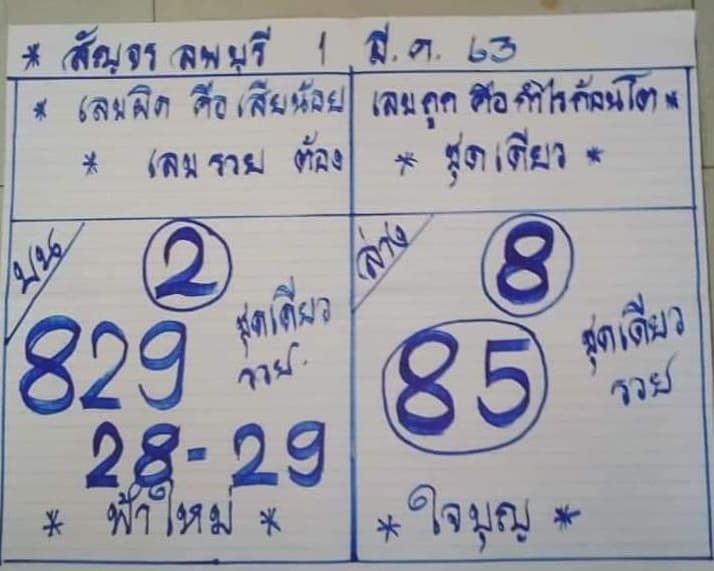 * สัญจร ลพบุรี 1 มี.ค. 63
* เลขผิด คือ เสียน้อย
* เลขรวย ต้อง
เลขถูก คือกำไรก้อนโต *
* ชุดเดียว *
บน
2
829
ชุดเดียว
รวย.
28-29
* ฟ้าใหม่ *
ล่าง
8
85
ชุดเดียว
รวย
* ใจบุญ *